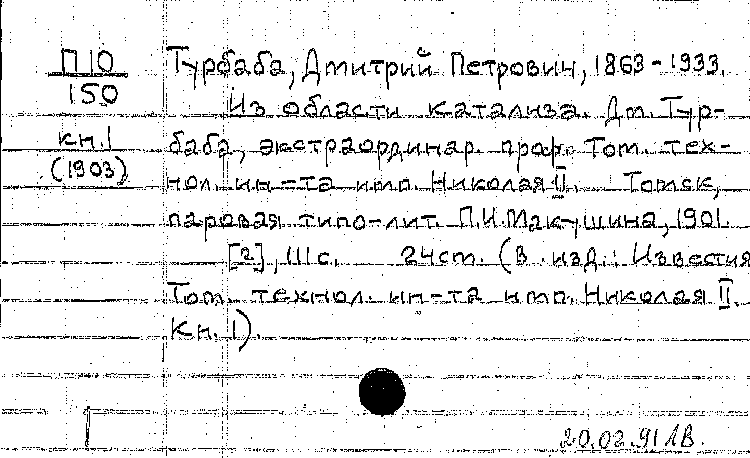 П 10
150
кн. 1
(1903)
Турбаба, Дмитрий Петрович, 1863-1933.
Из области катализа. Дм. Тур-
баба, экстраординар. проф. Том. тех-
нол. ин-та имп. Николая II. Томск,
паровая типо-лит. П.И. Макушина, 1901.
[2], 111 с. 24 см. (В изд.: Известия
Том. технол. ин-та имп. Николая II.
Кн. 1).
20.02.91 ЛВ.